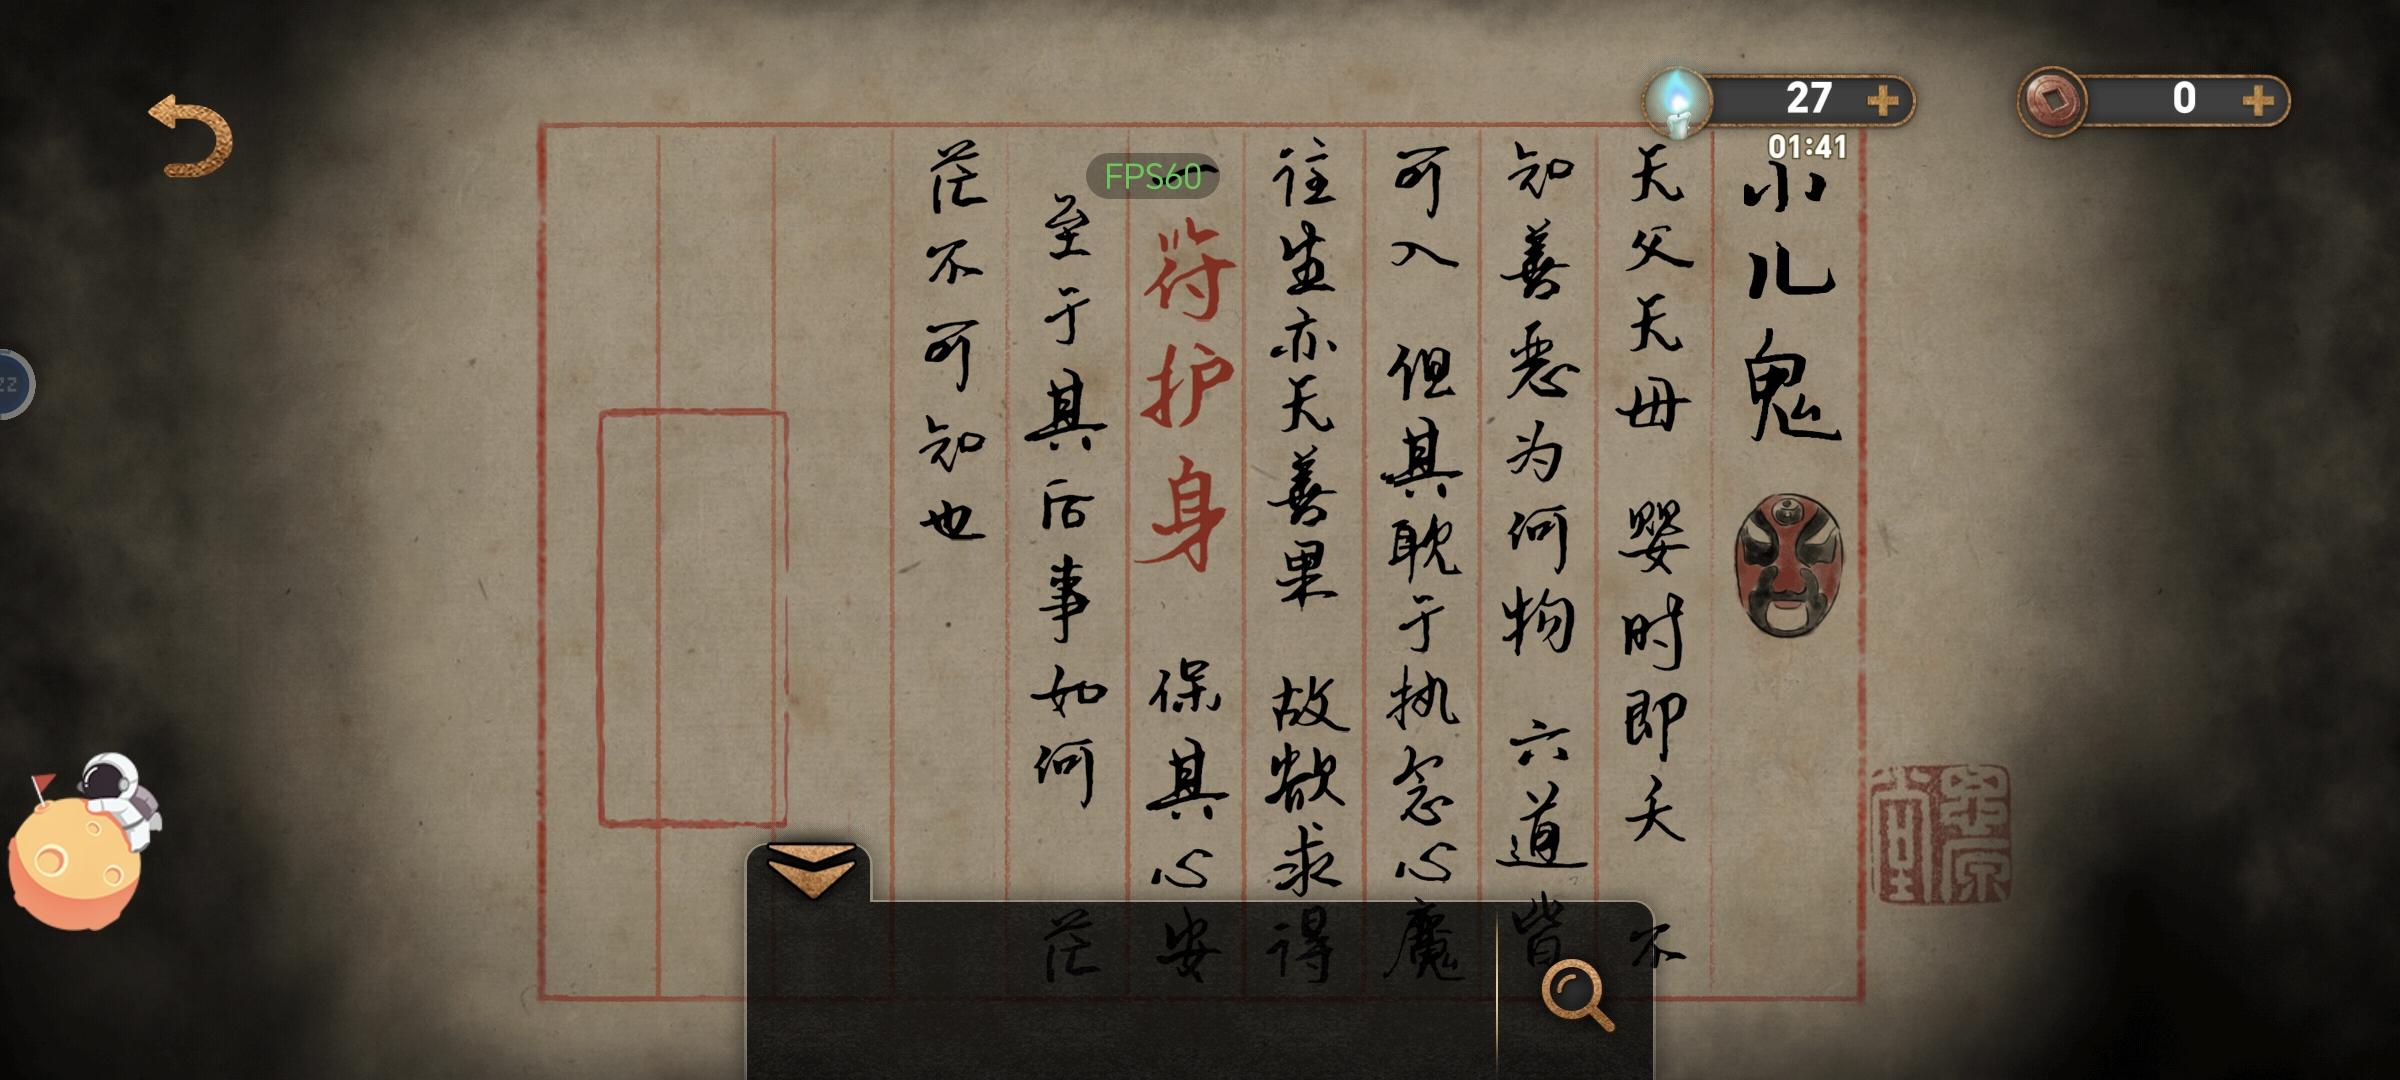 27
01:41
0
小儿鬼
天父天毋 婴时即夭 不
知善恶为何物 六道皆
可入 但其耽于执念心魔
往生亦无善果 故欲求得
一符护身 保其心安
至于其后事如何 茫
茫不可知也
FPS60
22